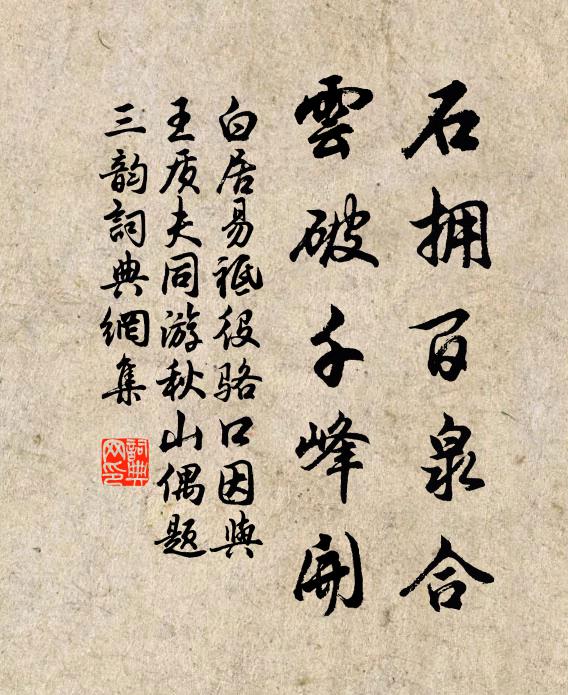 石拥百泉合
雲破千峰開
白居易祗役骆口因與
王质夫同游秋山偶题
三韵詞典網集
詞典网印